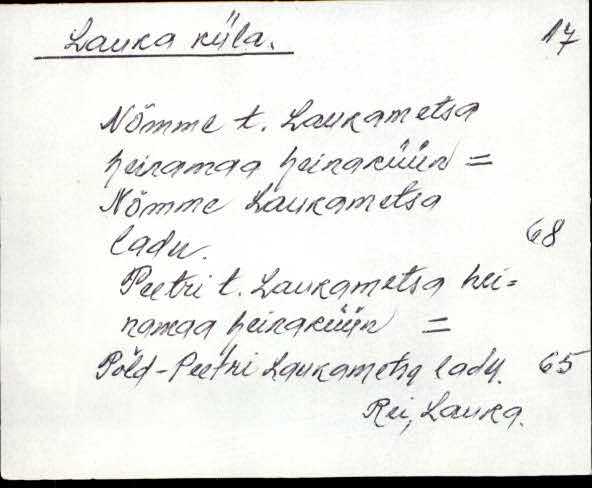 Lauka küla. 17
Nõmme t. Laukametsa
heinamaa heinaküün =
Nõmme Laukametsa
ladu. 68
Peetri t. Laukametsa hei=
namaa heinaküün =
Põld-Peetri Laukametsa ladu. 65
Rei, Lauka.